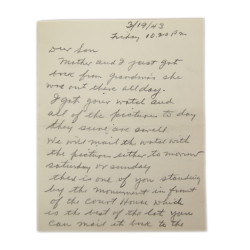 3/19/43
Friday 10.30 Pm
Dear Son
Mother and I just got
back from grandma's she
was out there all day.
I got your watch and
all of the pictures to day
they sure are swell.
We will mail the watch with
the pictures either to morrow
saturday or sunday
this is one of you standing
by the monument in front
of the court House which
is the best of the lot you
can mail it back to the